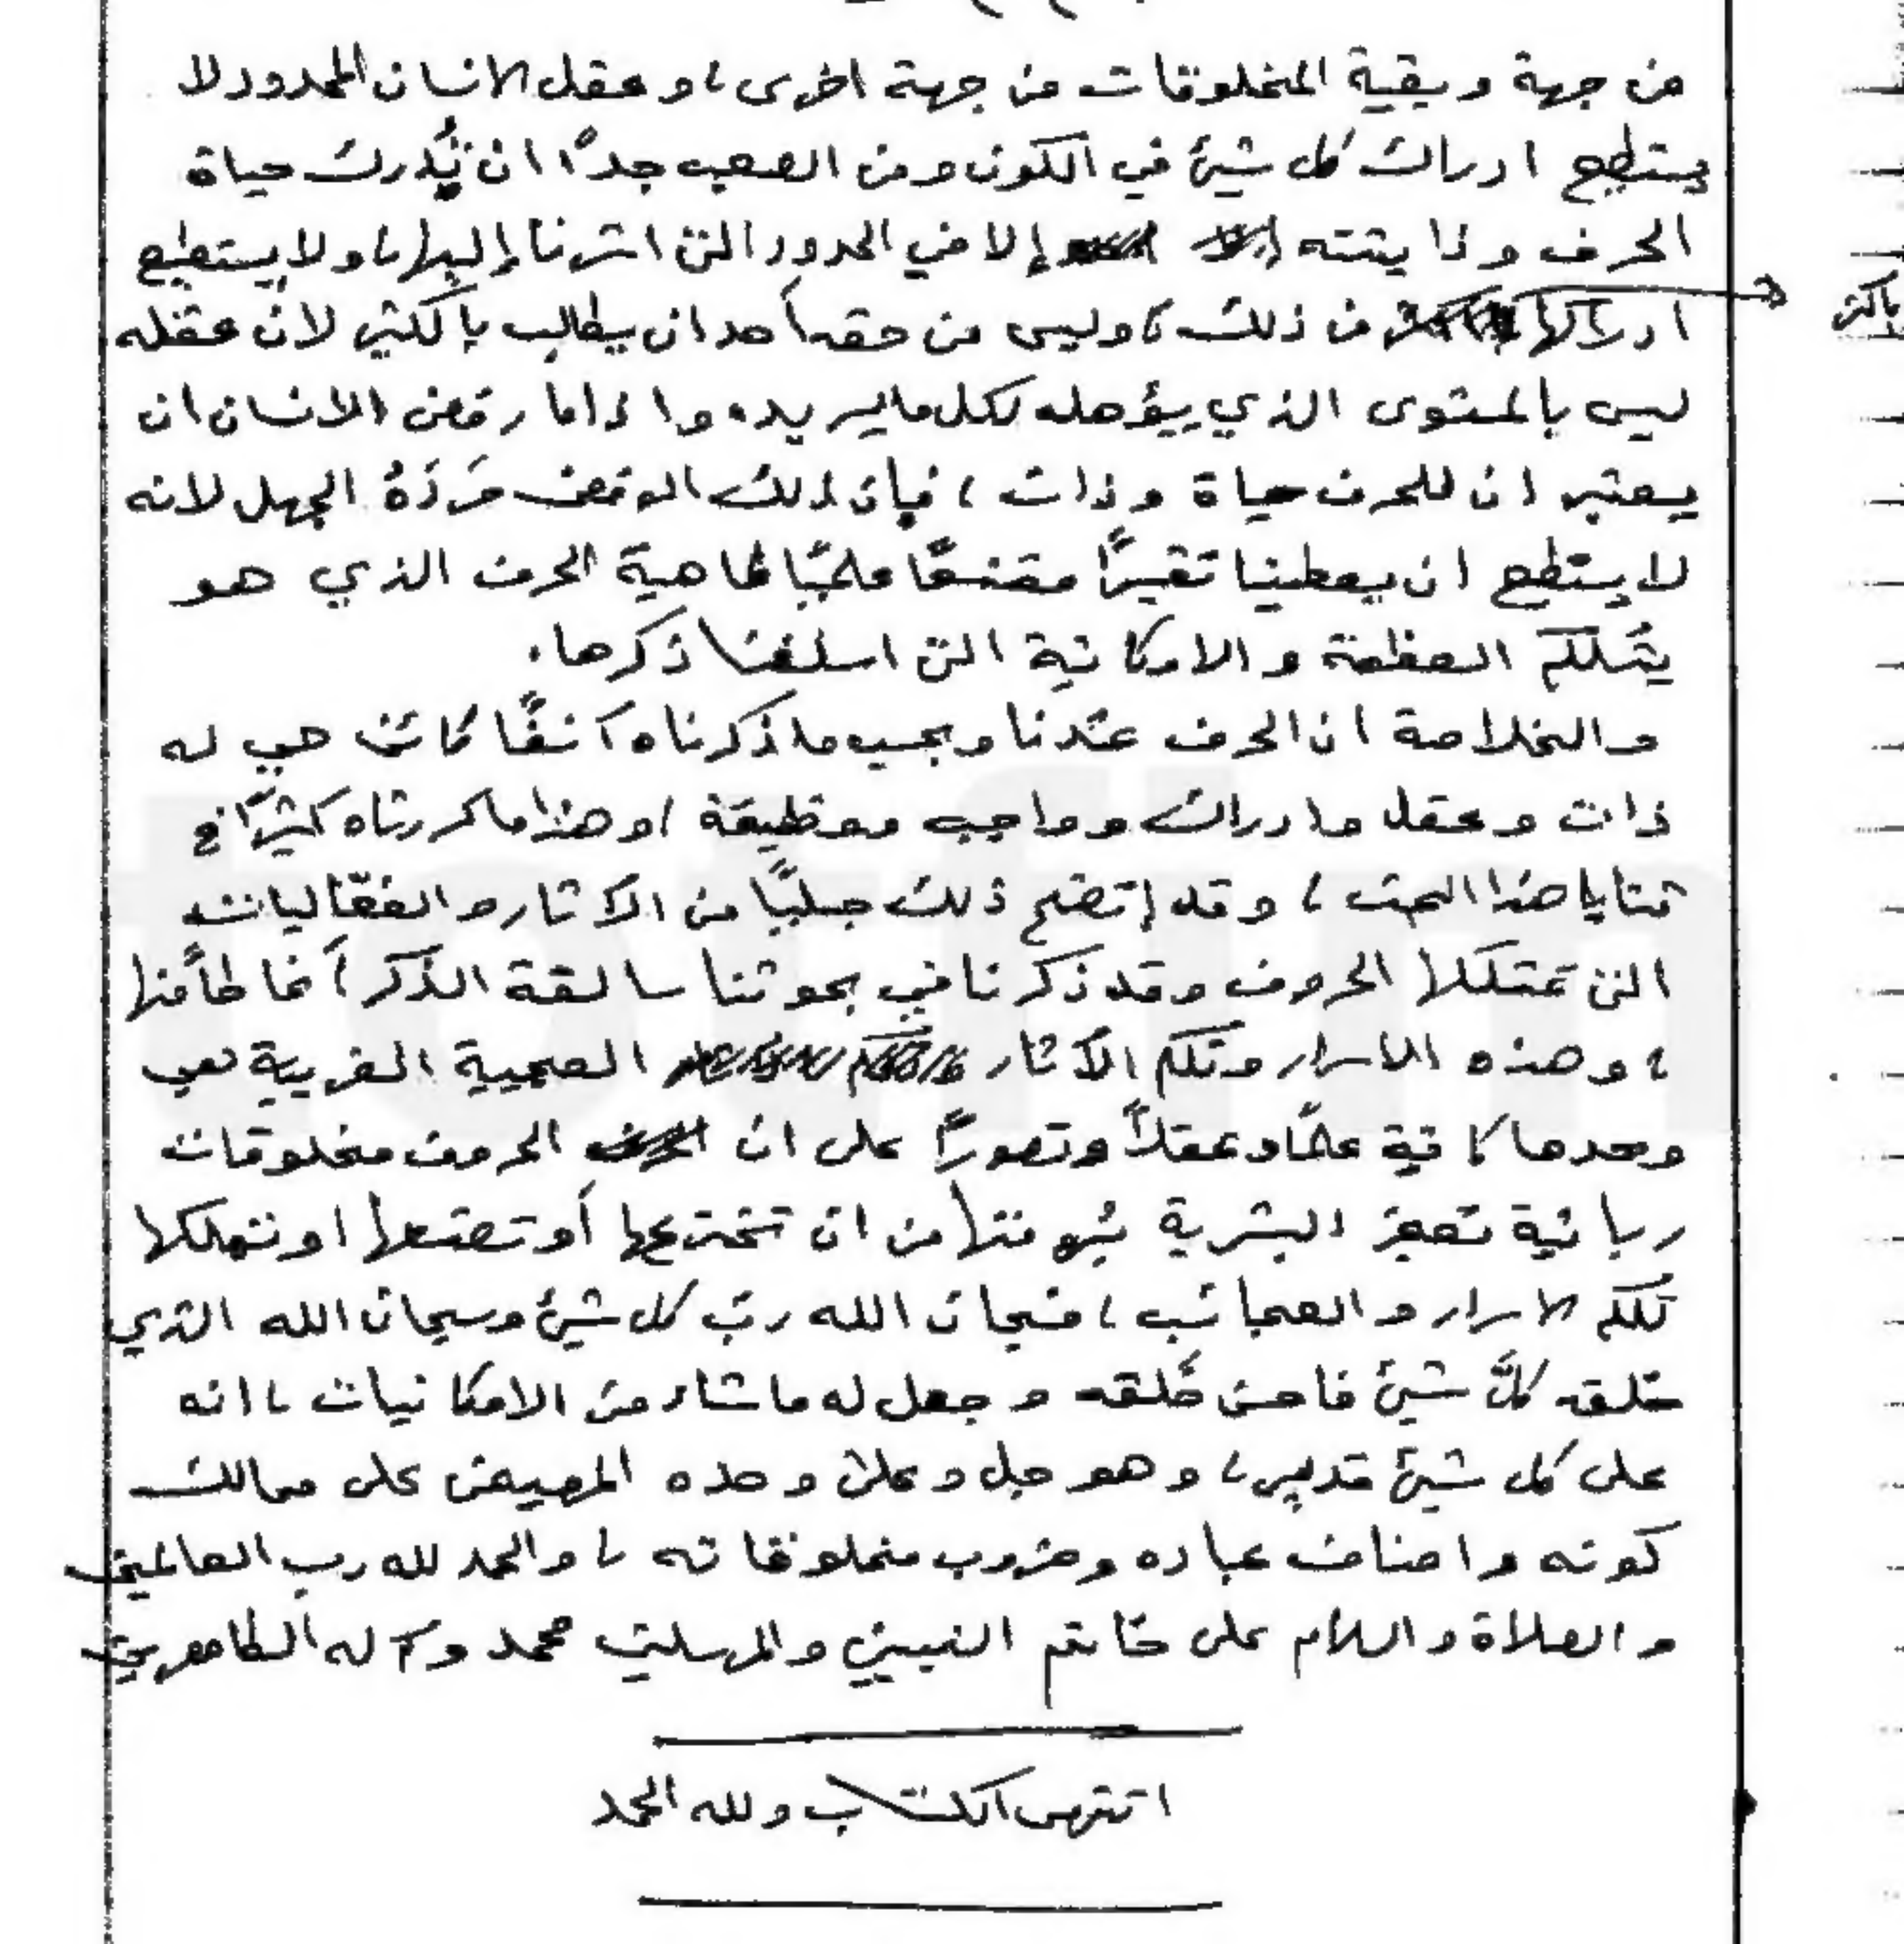 من جهة وبقية المخلوقات من جهة اخرى ، وعقل الانسان المحدود لا
يستطيع ادراك كل شيئ في الكون ومن الصعب جداً ان يُدرك حياة
الحرف وذاتيته إلا في الحدود التي اشرنا إليها ، ولا يستطيع
ادراكها باكثر من ذلك ، وليس من حقه أحد ان يطالب بأكثر لان عقله
ليس بالمستوى الذي يؤهله لكل ما يريده واذا ما رفض الانسان ان
يعتبر ان للحرف حياة وذات ، فإن ذلك الرفض مَرَدّهُ الجهل لانه
لا يستطيع ان يعطينا تفسيراً مقنعاً علمياً لماهية الحرف الذي هو
بتلكم العظمة والامكانية التي اسلفنا ذكرها .
والخلاصة ان الحرف عندنا وبحسب ما ذكرناه آنفاً كائن حي له
ذات وعقل وادراك وواجب ووظيفة ، وهذا ما كررناه كثيراً في
ثنايا هذا البحث ، وقد إتضح ذلك جلياً من الآثار والفعّاليات
التي تمتلكها الحروف وقد ذكرنا في بحوثنا سالفة الذكر أنماطاً منها
، وهذه الاسرار وتلكم الآثار العجيبة الغريبة لهي
وحدها كافية علماً وعقلاً وتصوراً على ان الحروف مخلوقات
ربانية تعجز البشرية برمتها من ان تخترعها أو تصنعها او تملكها
تلكم الاسرار والعجائب ، فسبحان الله ربّ كل شيئ وسبحان الله الذي
خلق كلَّ شيئ فاحسن خَلقه وجعل له ما شاء من الامكانيات ، انه
على كل شيئ قدير ، وهو جل وعلا وحده المهيمن على ممالك
كونه واصناف عباده وضروب مخلوقاته ، والحمد لله رب العالمين
والصلاة والسلام على خاتم النبيين والمرسلين محمد وآله الطاهرين
انتهى الكتاب ولله الحمد